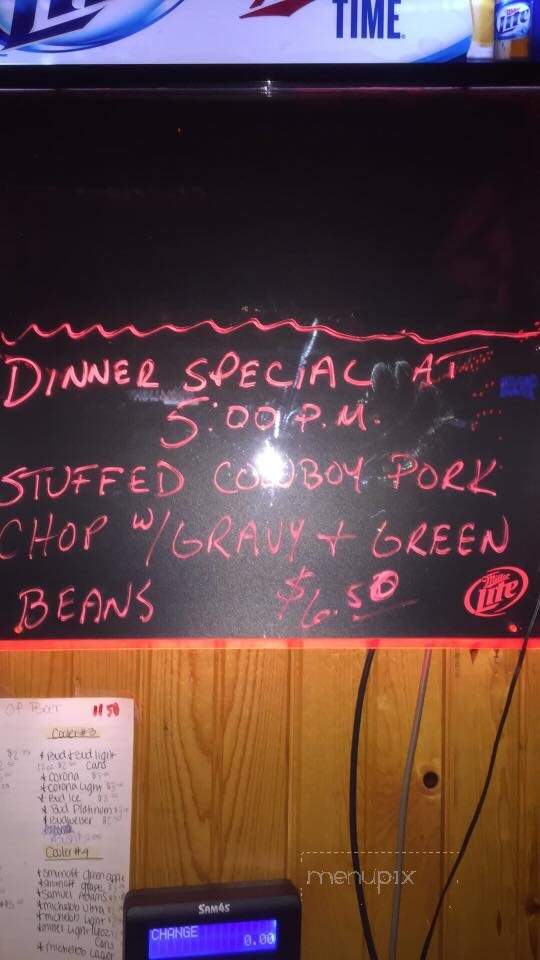 Lite
TIME
Lite
DINNER SPECIAL AT
5:00 P.M.
STUFFED COWBOY PORK
CHOP W/ GRAVY + GREEN
BEANS $6.50
Miller
Lite
of Beer 11 50
Cooler #3
* Bud & Bud light
Cans
* Corona
* Corona Light
* Bud Ice
* Bud Platinum
* Budweiser
Cooler #4
* Smirnoff Green apple
* Smirnoff grape
* Samuel Adams
* Michelob Ultra
* Michelob Light
* Miller Light
Cans
* Michelob Lager
SAM4S
CHANGE
0.00
menupix